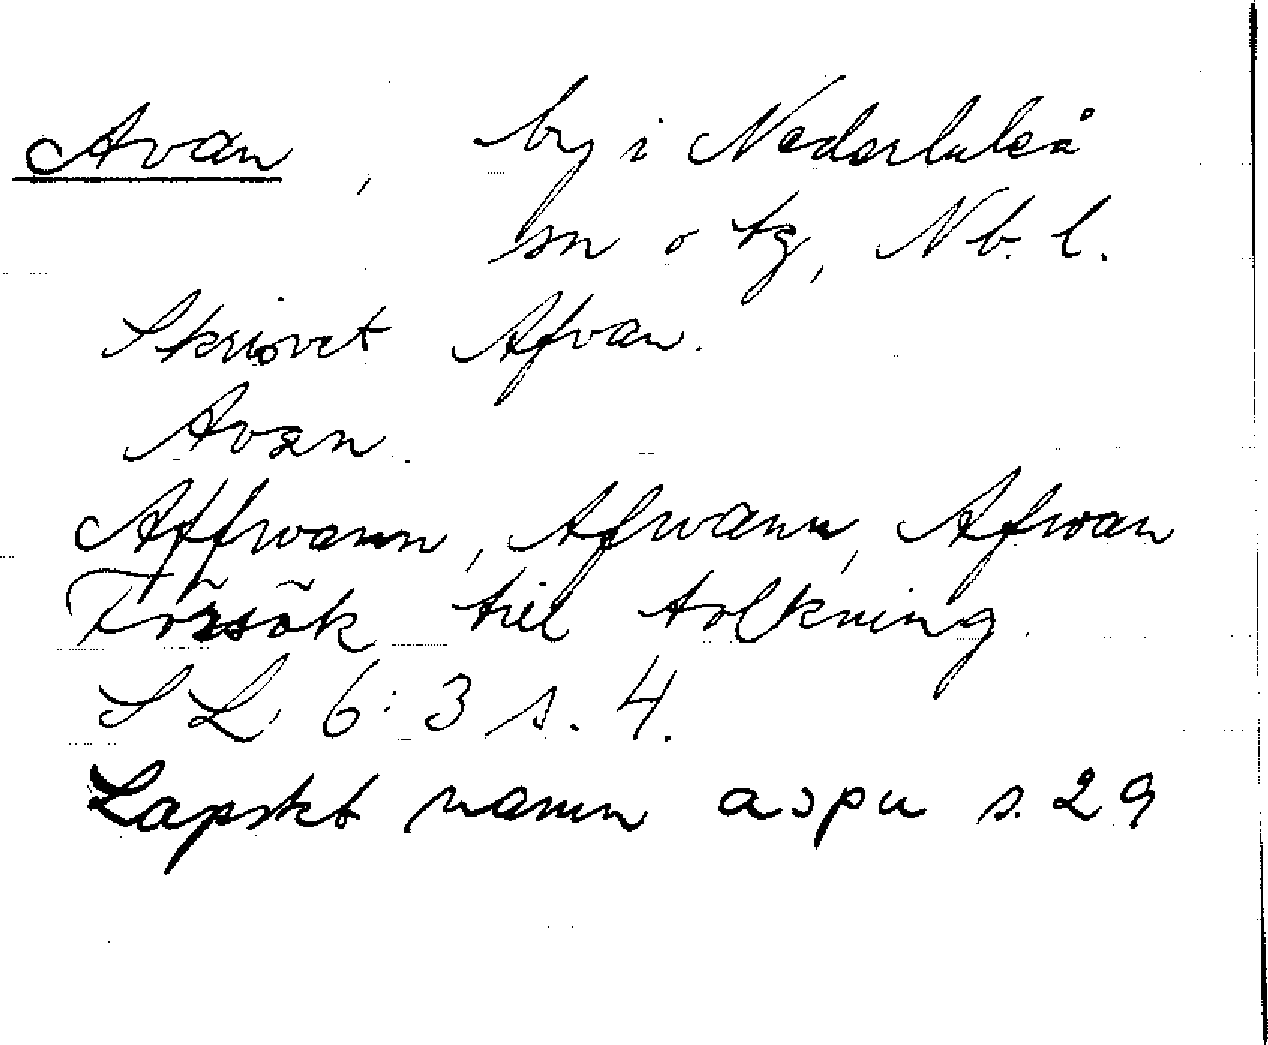 Avan, by i Nederluleå
sn o tg, Nb. l.
Skrivet Afvan.
Avan.
Affwann, Afwann, Afwan
Försök till tolkning.
SL 6:3 s. 4.
Lapskt namn aɔpu s. 29